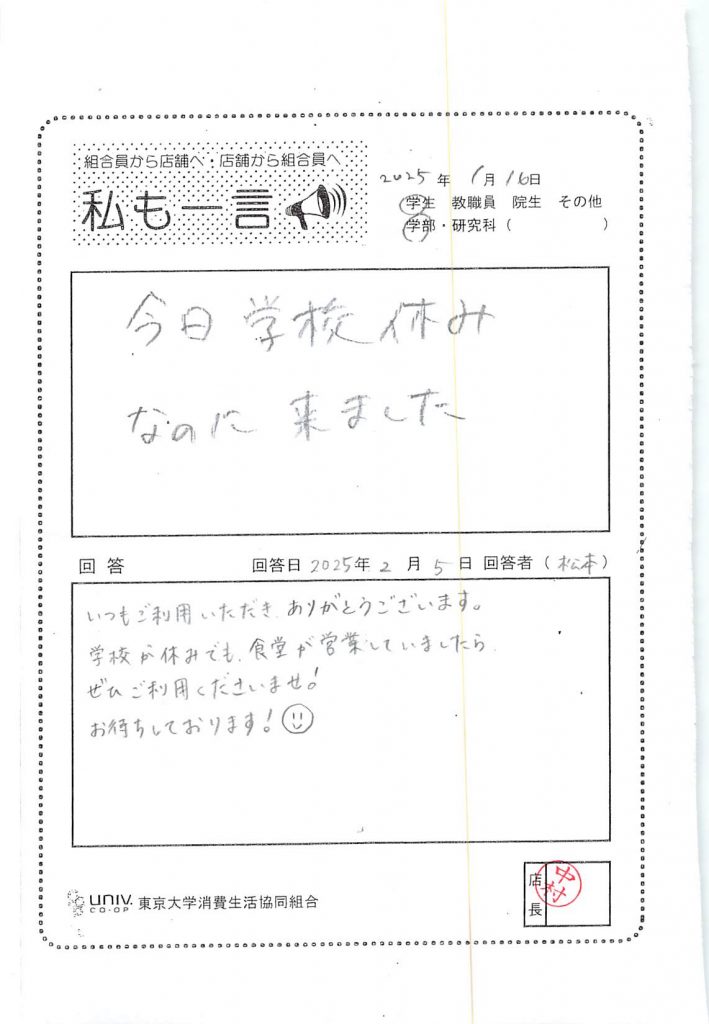 組合員から店舗へ・店舗から組合員へ
私も一言
2025年 1月16日
学生 教職員 院生 その他
学部・研究科( )
今日学校休み
なのに来ました
回答 回答日 2025年2月5日 回答者(松本)
いつもご利用いただき、ありがとうございます。
学校が休みでも、食堂が営業していましたら、
ぜひご利用くださいませ!
お待ちしております!
UNIV. CO-OP 東京大学消費生活協同組合
店長
中村